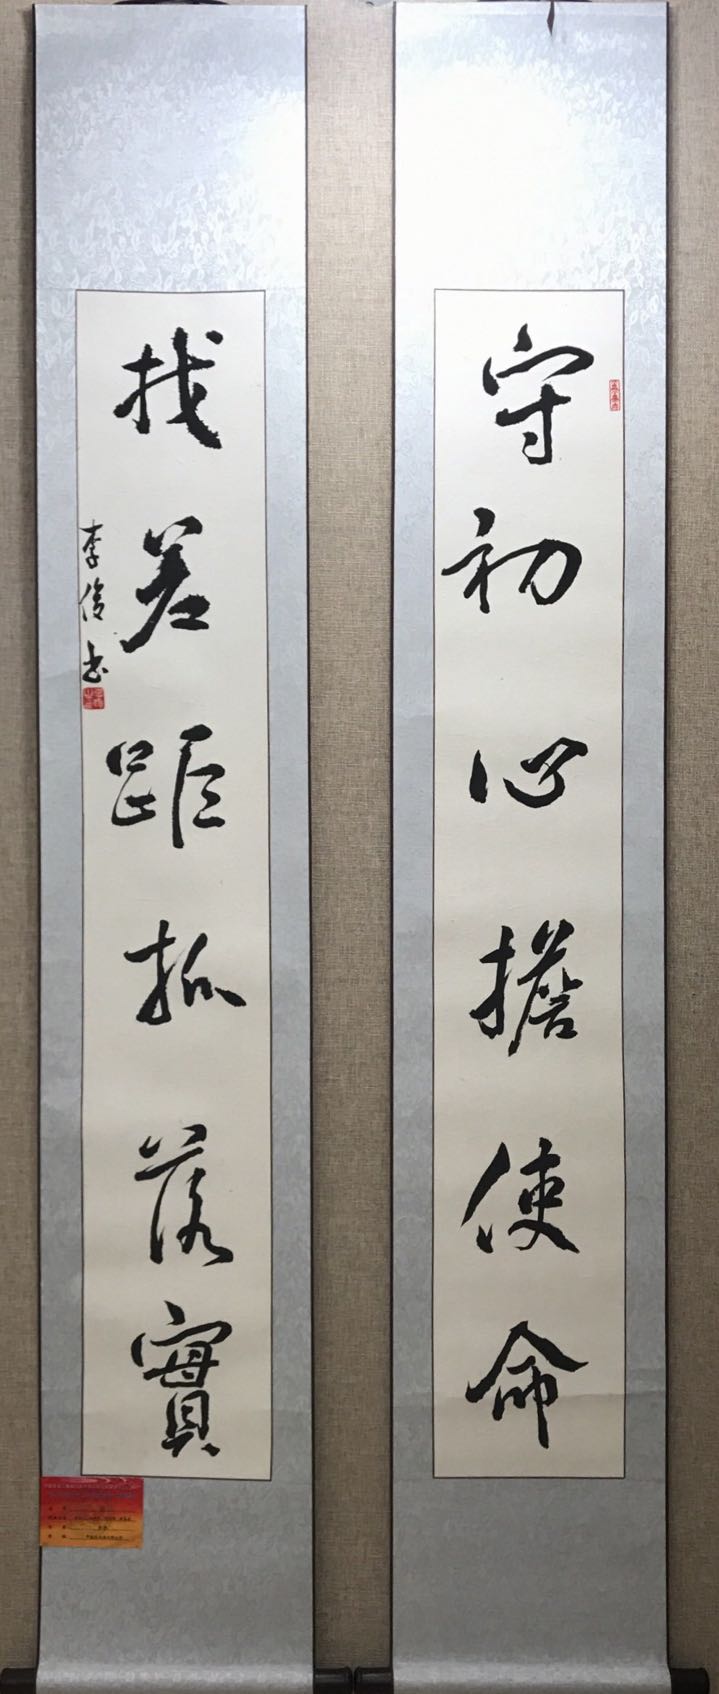 守初心擔使命
找差距抓落實
李俊书